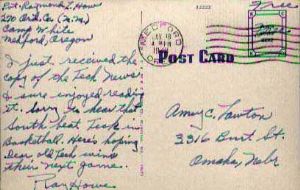 Pvt. Raymond L. Howe
270 Ord. Co. (M.M.)
Camp White
Medford, Oregon
I just received the
copy of the Tech News
I sure enjoyed reading
it. Sorry to hear that
South beat Tech in
Basketball. Here's hoping
dear old Tech wins
their next game.
Ray Howe
Free
MEDFORD
POST CARD
Amy C. Lawton
3316 Burt St.
Omaha, Nebr